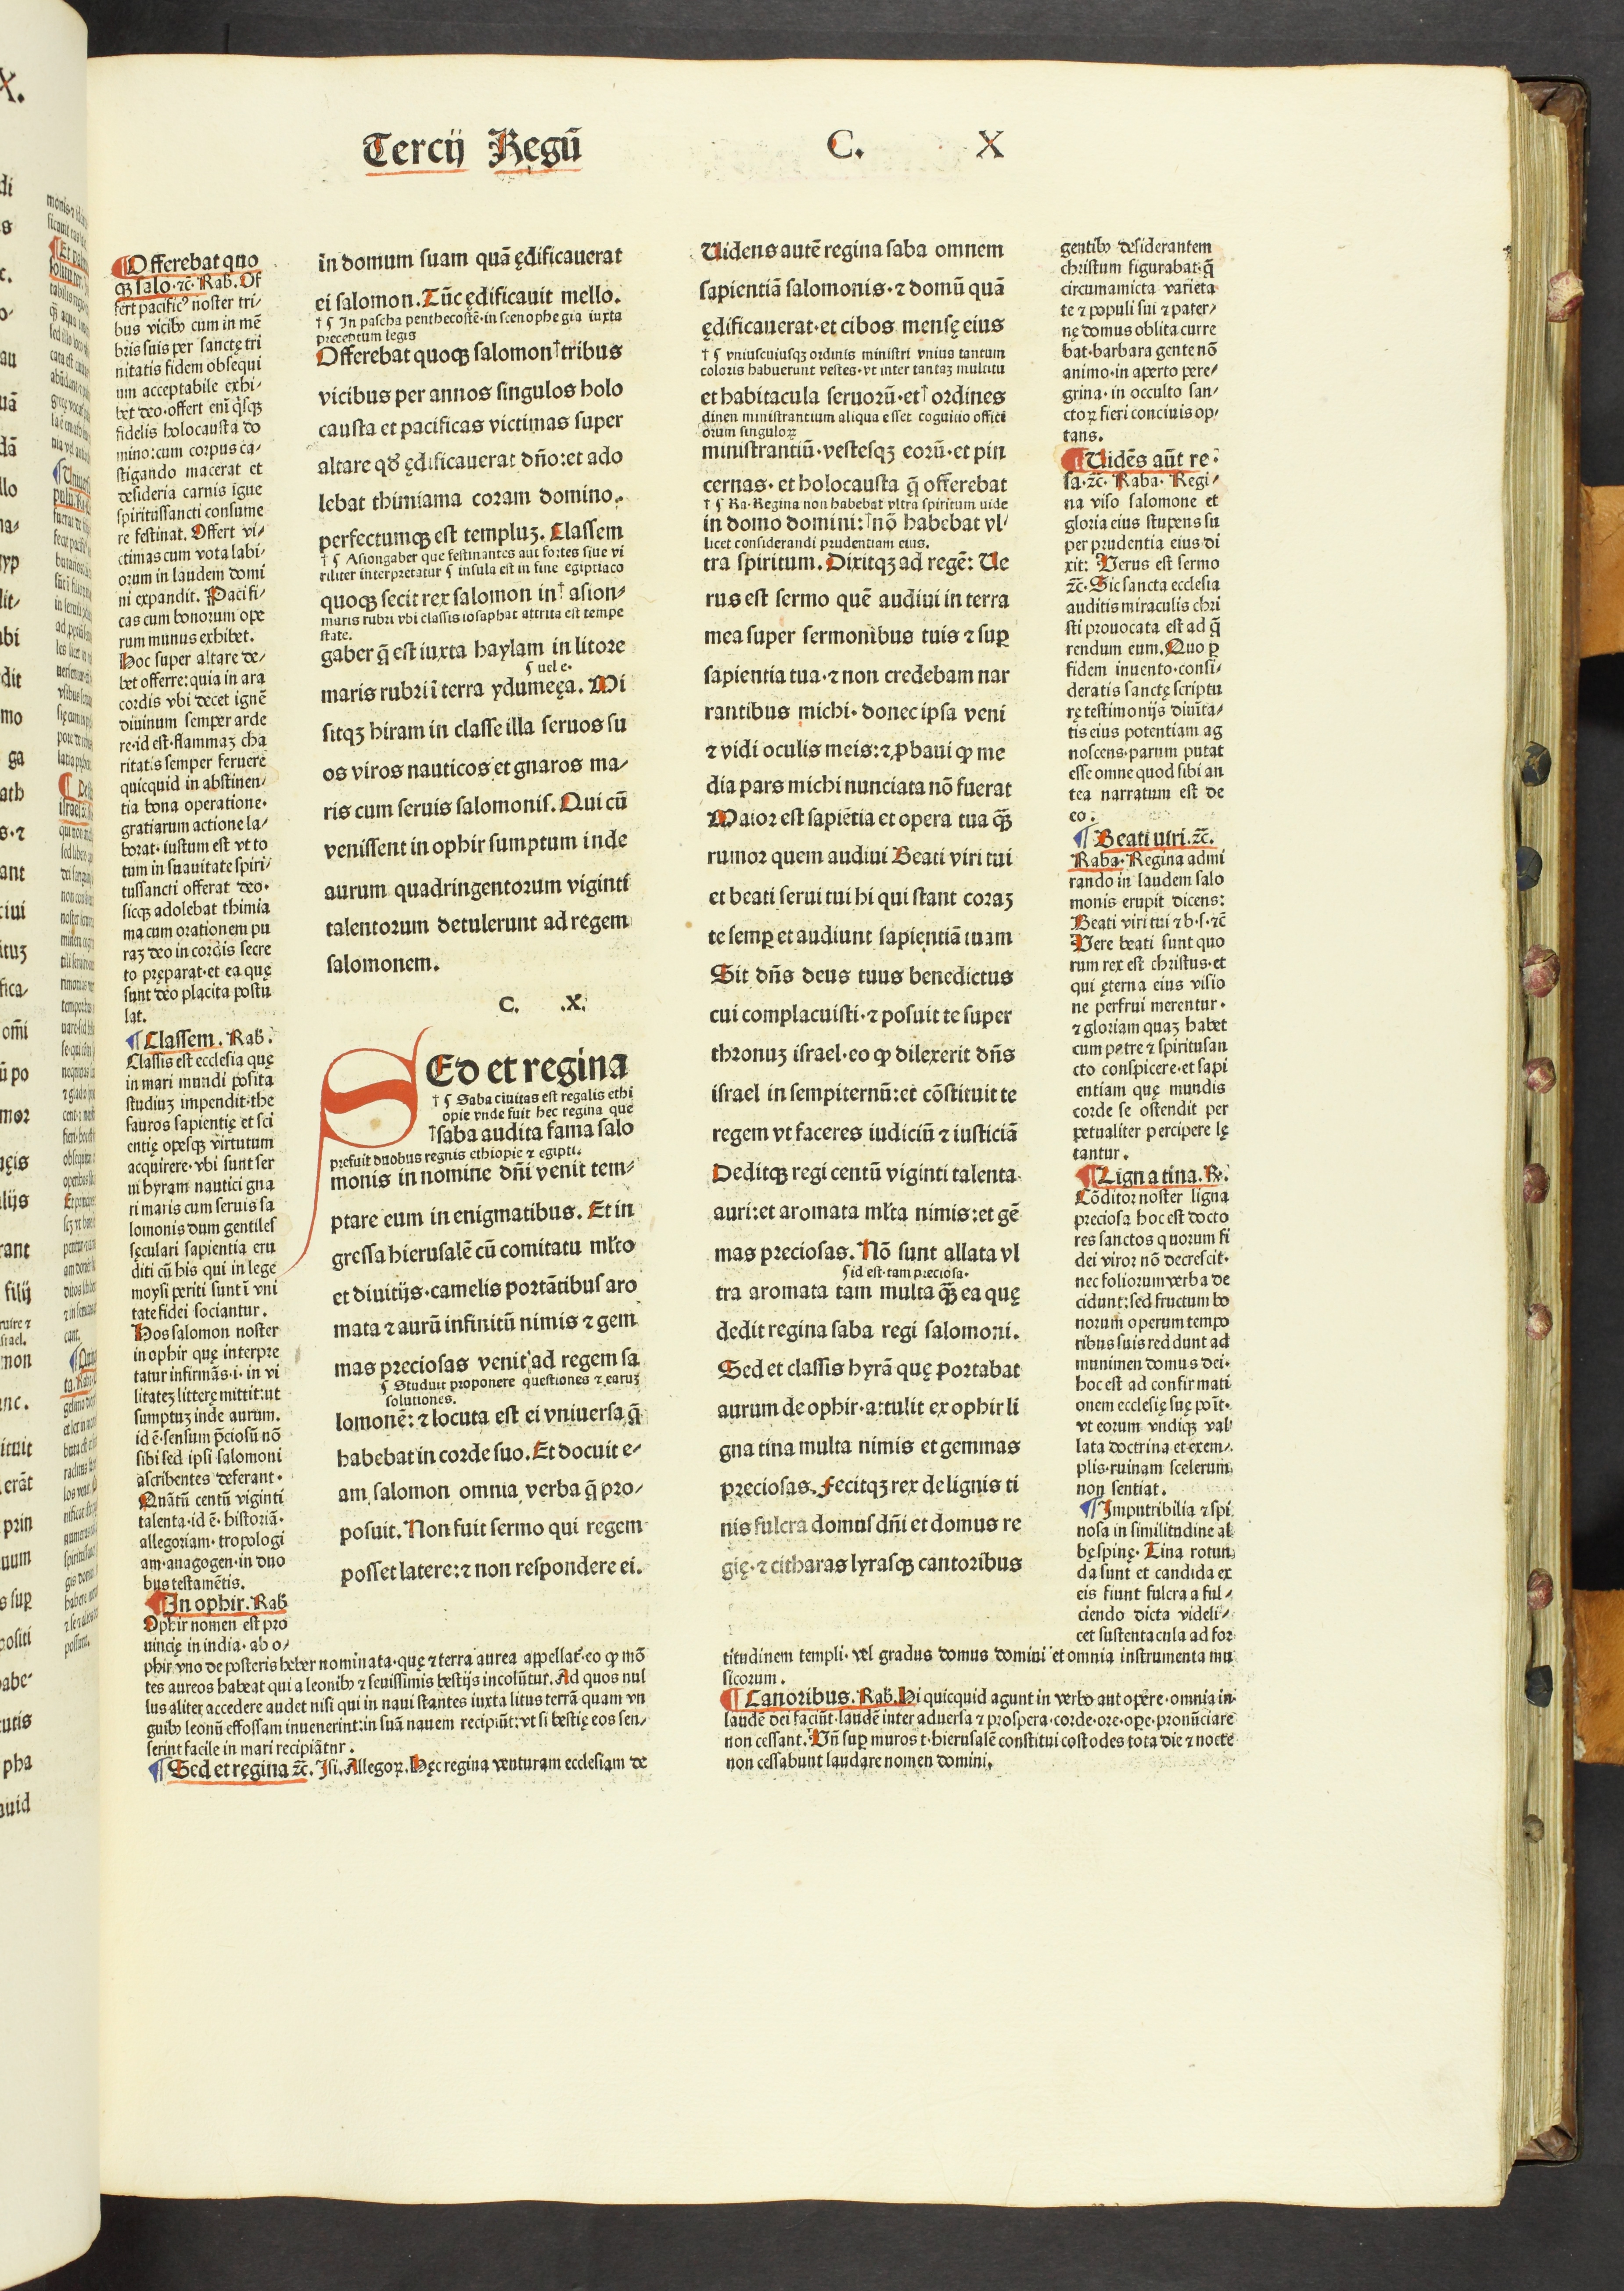 Tercij Regū C. X
¶Offerebat quo
qꝫ salo·ꝛc̄· Rab. Of
fert pacific⁹ noster tri-
bus vicibꝰ cum in mē
bris suis per sanctę tri
nitatis fidem obsequi
um acceptabile exhi-
bet deo·offert eni q̇sqꝫ
fidelis holocausta do
mino:cum corpus ca-
stigando macerat et
desideria carnis igne
spiritussancti consume
re festinat. Offert vi-
ctimas cum vota labi-
orum in laudem domi
ni expandit. Pacifi-
cas cum bonorum ope
rum munus exhibet.
Hoc super altare de-
bet offerre:quia in ara
cordis vbi decet ignē
diuinum semper arde
re·id est·flammaꝫ cha
ritatis semper feruere
quicquid in abstinen-
tia bona operatione·
gratiarum actione la-
borat·iustum est vt to
tum in suauitate spiri-
tussancti offerat deo·
sicqꝫ adolebat thimia
ma cum orationem pu
raꝫ deo in cordis secre
to pręparat·et ea quę
sunt deo placita postu
lat.
¶Classem. Rab.
Classis est ecclesia quę
in mari mundi posita
studiuꝫ impendit·the
sauros sapientię et sci
entię opesqꝫ virtutum
acquirere·vbi sunt ser
ui hyram nautici gna
ri maris cum seruis sa
lomonis dum gentiles
sęculari sapientia eru
diti cū his qui in lege
moysi periti sunt ī vni
tate fidei sociantur.
Hos salomon noster
in ophir quę interpre
tatur infirmās·i·in vi
litateꝫ litterę mittit:ut
sumptuꝫ inde aurum.
id ē·sensum p̄ciosū nō
sibi sed ipsi salomoni
ascribentes deferant·
Quātū centū viginti
talenta·id ē·historiā·
allegoriam·tropologi
am·anagogen·in duo
bus testamētis.
¶In ophir. Rab
Ophir nomen est pro
uincię in india·ab o-
phir vno de posteris heber nominata·quę ⁊ terra aurea appellat᷑·eo ꝙ mō
tes aureos habeat qui a leonibꝰ ⁊ seuissimis bestijs incolūtur. Ad quos nul
lus aliter accedere audet nisi qui in naui stantes iuxta litus terrā quam vn
guibꝰ leonū effossam inuenerint:in suā nauem recipiūt:vt si bestię eos sen-
serint facile in mari recipiātnr.
¶Sed et ręgina ꝛc̄. Isi. Allegoꝝ. Hęc regina venturam ecclesiam de
in domum suam quā ędificauerat
ei salomon. Tūc ędificauit mello.
† ¶ In pascha penthecostē·in scenophegia iuxta
preceptum legis
Offerebat quoqꝫ salomon†tribus
vicibus per annos singulos holo
causta et pacificas victimas super
altare qd̄ ędificauerat dn̄o:et ado
lebat thimiama coram domino.
perfectumqꝫ est templuꝫ. Classem
† ¶ Asiongaber que festinantes aut fortes siue vi
riliter interpretatur ¶ insula est in fine egiptiaco
quoqꝫ fecit rex salomon in† asion-
maris rubri vbi classis iosaphat attrita est tempe
state.
gaber q̄ est iuxta haylam in litore
¶ uel e·
maris rubri ī terra ydumęęa. Mi
sitqꝫ hiram in classe illa seruos su
os viros nauticos et gnaros ma-
ris cum seruis salomonis. Qui cū
venissent in ophir sumptum inde
aurum quadringentorum viginti
talentorum detulerunt ad regem
salomonem.
C. .X.
SEd et regina
† ¶ Saba ciuitas est regalis ethi
opie vnde fuit hec regina que
†saba audita fama salo
prefuit duobus regnis ethiopie ⁊ egipti.
monis in nomine dn̄i venit tem-
ptare eum in enigmatibus. Et in
gressa hierusalē cū comitatu ml̄to
et diuitijs·camelis portātibus aro
mata ⁊ aurū infinitū nimis ⁊ gem
mas preciosas venit ad regem sa
¶ Studuit proponere questiones ⁊ earuꝫ
solutiones.
lomonē: ⁊ locuta est ei vniuersa q̄
habebat in corde suo. Et docuit e-
am salomon omnia verba q̄ pro-
posuit. Non fuit sermo qui regem
posset latere:⁊ non respondere ei.
Uidens autē regina saba omnem
sapientiā salomonis·⁊ domū quā
ędificauerat·et cibos mensę eius
† ¶ vniuscuiusqꝫ ordinis ministri vnius tantum
coloris habuerunt vestes·vt inter tantaꝫ multitu
et habitacula seruorū·et† ordines
dinen ministrantium aliqua esset cognitio offici
orum singuloꝝ
ministrantiū·vestesqꝫ eorū·et pin
cernas·et holocausta q̄ offerebat
† ¶ Ra·Regina non habebat vltra spiritum uide
in domo domini:†nō habebat vl-
licet considerandi prudentiam eius.
tra spiritum. Dixitqꝫ ad regē: Ue
rus est sermo quē audiui in terra
mea super sermonibus tuis ⁊ suꝑ
sapientia tua·⁊ non credebam nar
rantibus michi·donec ipsa veni
⁊ vidi oculis meis:⁊ ꝓbaui ꝙ me
dia pars michi nunciata nō fuerat
Maior est sapiētia et opera tua q̄ꝫ
rumor quem audiui Beati viri tui
et beati serui tui hi qui stant coraꝫ
te semꝑ et audiunt sapientiā tuam
Sit dn̄s deus tuus benedictus
cui complacuisti·⁊ posuit te super
thronuꝫ israel·eo ꝙ dilexerit dn̄s
israel in sempiternū:et cōstituit te
regem vt faceres iudiciū ⁊ iusticiā
Deditqꝫ regi centū viginti talenta
auri:et aromata ml̄ta nimis:et gē
mas preciosas. Nō sunt allata vl
¶ id est·tam preciosa·
tra aromata tam multa q̄ꝫ ea quę
dedit regina saba regi salomoni.
Sed et classis hyrā quę portabat
aurum de ophir·attulit ex ophir li
gna tina multa nimis et gemmas
preciosas. Fecitqꝫ rex de lignis ti
nis fulcra domus dn̄i et domus re
gię·⁊ citharas lyrasqꝫ cantoribus
gentibꝰ desiderantem
christum figurabat·q̄
circumamicta varieta
te ⁊ populi sui ⁊ pater-
nę domus oblita curre
bat·barbara gente nō
animo·in aperto pere-
grina·in occulto san-
ctoꝝ fieri conciuis op-
tans.
¶Uidēs aūt re·
sa·ꝛc̄· Raba· Regi-
na viso salomone et
gloria eius stupens su
per prudentia eius di
xit: Verus est sermo
ꝛc̄·Sic sancta ecclesia
auditis miraculis chri
sti prouocata est ad q̄
rendum eum. Quo ꝑ
fidem inuento·consi-
deratis sanctę scriptu
rę testimonijs diuīta-
tis eius potentiam ag
noscens·parum putat
esse omne quod sibi an
tea narratum est de
eo.
¶Beati uiri.ꝛc̄.
Raba·Regina admi
rando in laudem salo
monis erupit dicens:
Beati viri tui ⁊ b·s·ꝛc̄
Vere beati sunt quo
rum rex est christus·et
qui ęterna eius visio
ne perfrui merentur·
⁊ gloriam quaꝫ habet
cum patre ⁊ spiritusan
cto conspicere·et sapi
entiam quę mundis
corde se ostendit per
petualiter percipere lę
tantur.
¶Ligna tina. R.
Cōditor noster ligna
preciosa hoc est docto
res sanctos quorum fi
dei viror nō decrescit·
nec foliorum verba de
cidunt:sed fructum bo
norum operum tempo
ribus suis reddunt ad
munimen domus dei·
hoc est ad confirmati
onem ecclesię suę poīt·
vt eorum vndiqꝫ val
lata doctrina et exem-
plis·ruinam scelerum
non sentiat.
¶Imputribilia ⁊ spi
nosa in similitudine al
bęspinę·Tina rotun
da sunt et candida ex
eis fiunt fulcra a ful-
ciendo dicta videli-
cet sustentacula ad for
titudinem templi·vel gradus domus domini et omnia instrumenta mu
sicorum.
¶Canoribus. Rab. Hi quicquid agunt in verbo aut opere·omnia in
laudē dei faciūt·laudē inter aduersa ⁊ prospera·corde·ore·oꝑe·pronūciare
non cessant. Vn̄ suꝑ muros t·hierusalē constitui costodes tota die ⁊ nocte
non cessabunt laudare nomen domini.